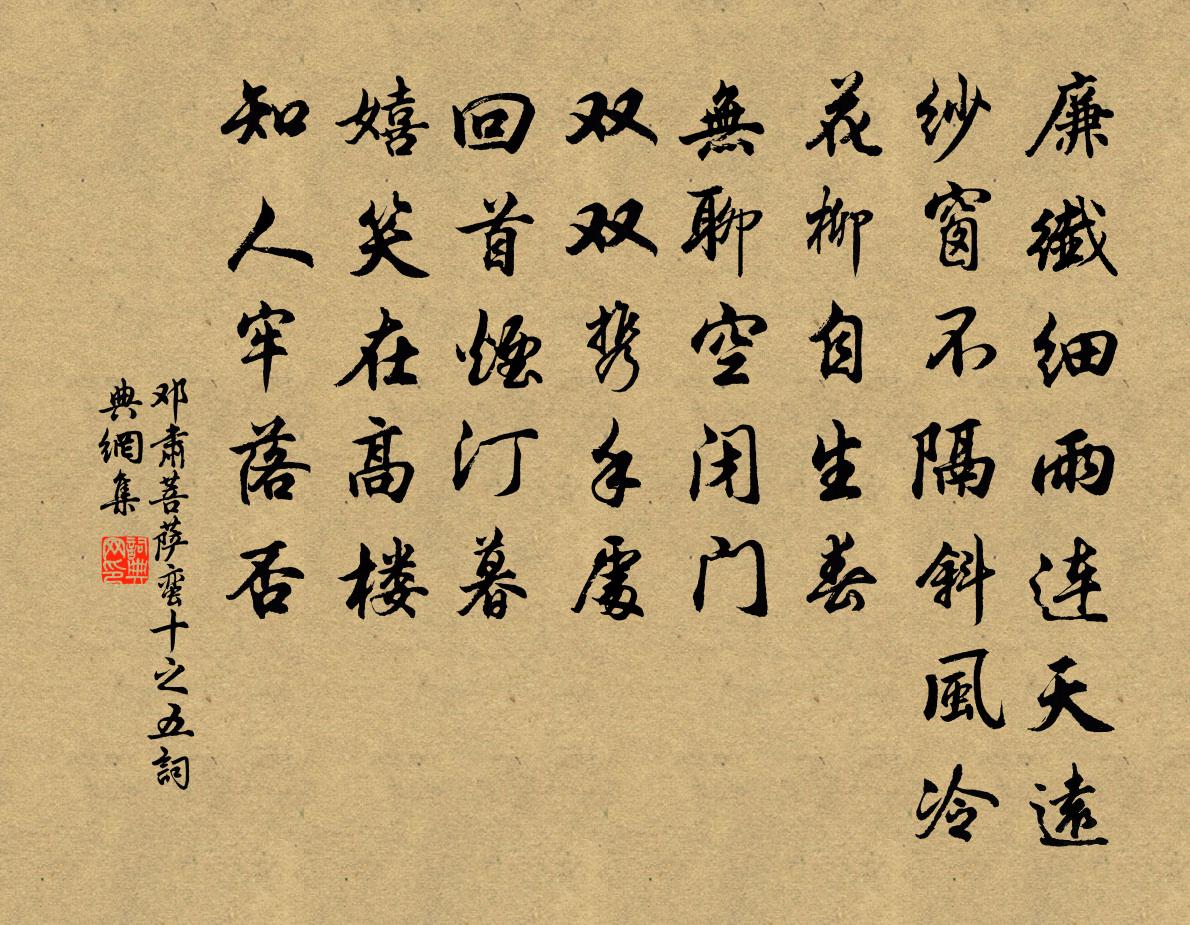 廉纖細雨連天遠
紗窗不隔斜風冷
花柳自生春
無聊空闭门
双双携手處
回首煙汀暮
嬉笑在高楼
知人牢落否
邓肅菩萨蛮十之五詞
典網集
詞典网印